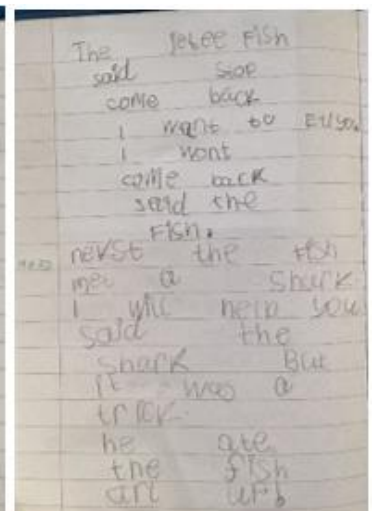 The jelee FiSh
said Stop
come back
I want to Et you.
I wont
come back
said the
FiSh.
nexst the fish
met a Shark
I will help you
said the
Shark But
it was a
trick.
he ate
the fish
all up